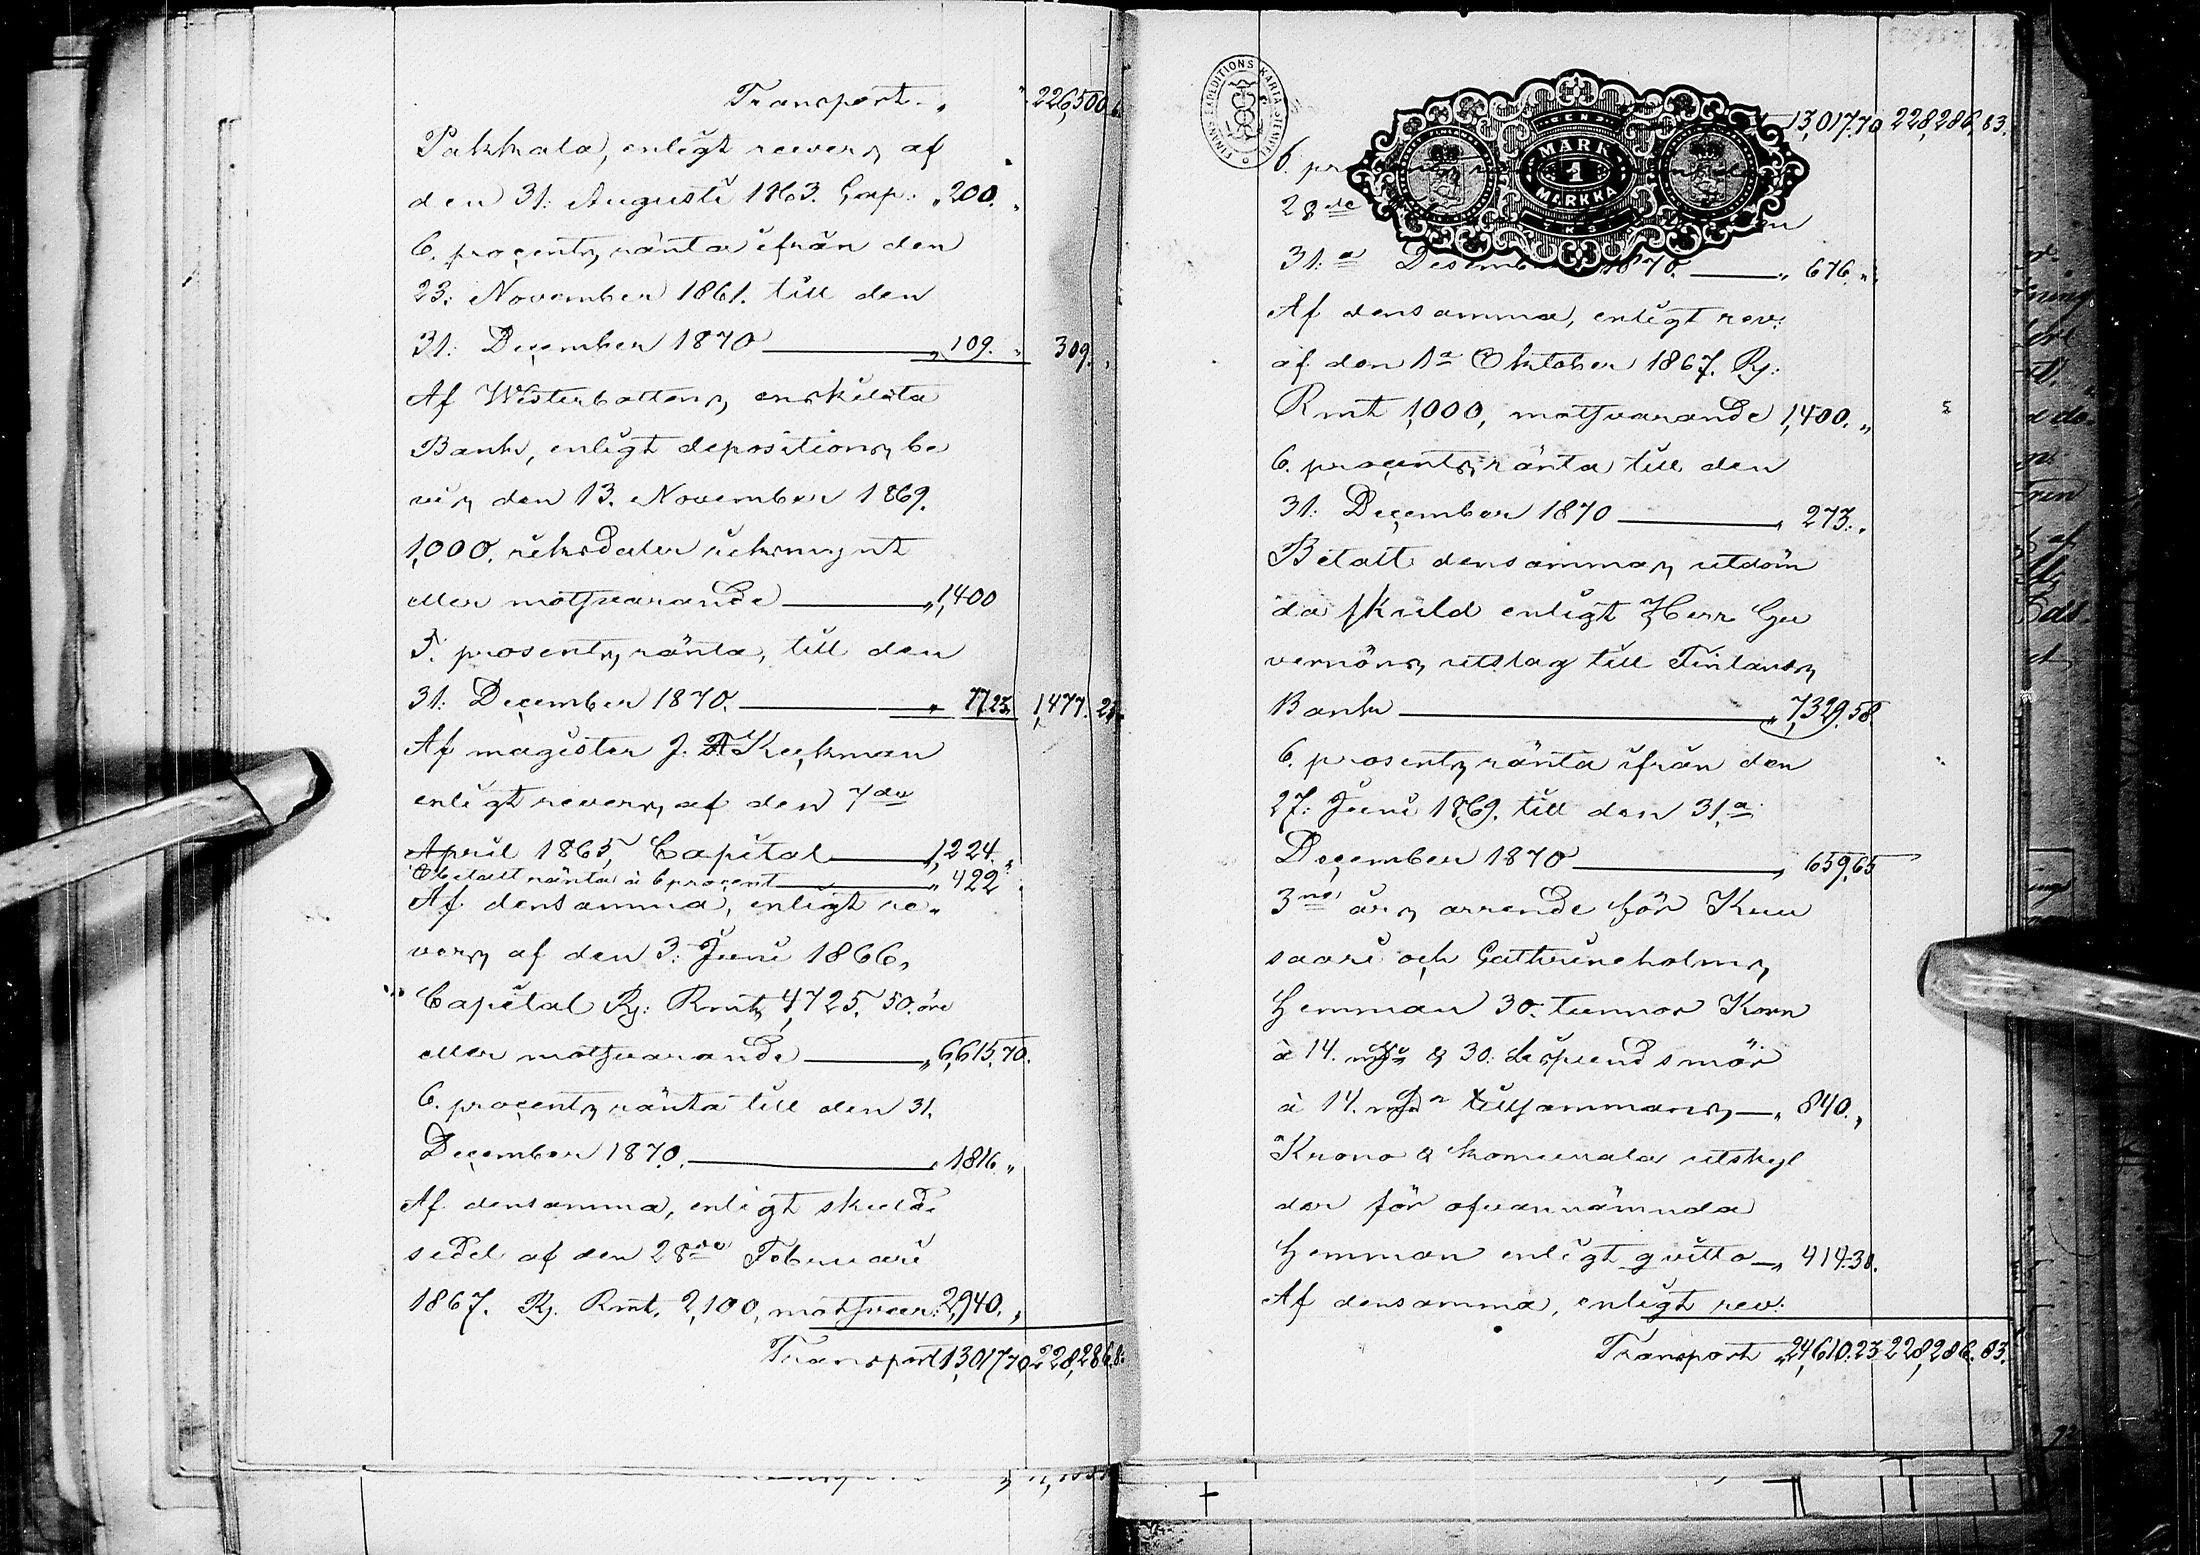 Transport " " 226,500
Pakkala, enligt revers af
den 31: Augusti 1863. Cap: " 200. "
6. procents ränta ifrån den
23: November 1861. till den
31: December 1870 " 109. " 309. "
Af Westerbottens enskilda
Bank, enligt depositions be
vis den 13. November 1869.
1,000. riksdaler riksmynt
eller motsvarande " 1,400
5. prosents ränta, till den
31: December 1870. " 77.23. 1,477. 23
Af magister J. Keckman
enligt revers, af den 7de
April 1865, Capital 1,224. "
Obetalt ränta à 6 procent " 422 "
Af densamma, enligt re-
vers af den 3: Juni 1866,
Capital Rj: Rmt 4,725. 50. öre
eller motsvarande " 6,615,70.
6. procents ränta till den 31.
December 1870. " 1816 "
Af densamma, enligt skuld-
sedel af den 28de Februari
1867. Rj. Rmt. 2,100, motsvar: 2,940. "
Transport 13,017 70 228,286.8
FINANS EXPEDITIONS KARTA STEMPEL
MARK
1
MARKKA
13,017.70 228,286. 83.
6. pr
28de
31:a Desemb 1870. " 676. "
Af densamma, enligt rev:
af den 1a Oktober 1867. Rj:
Rmt 1,000, motsvarande 1,400. "
6. procents ränta till den
31: December 1870 " 273. "
Betalt densammas utdöm
da skuld enligt Herr Gu
vernörs utslag till Finlands
Bank " 7,329,58
6. prosents ränta ifrån den
27: Juni 1869. till den 31.a
December 1870 " 659,65
3ne års arrende för Kuu
saari och Cathrineholms
Hemman 30. tunnor Korn
à 14. & 30: Lispund smör
à 14. tillsammans " 840. "
Krono & komunala utskyl
der för ofvannämnda
Hemman enligt qvitto " 414.30.
Af densamma, enligt rev:
Transport " 24,610.23 228,286. 83.